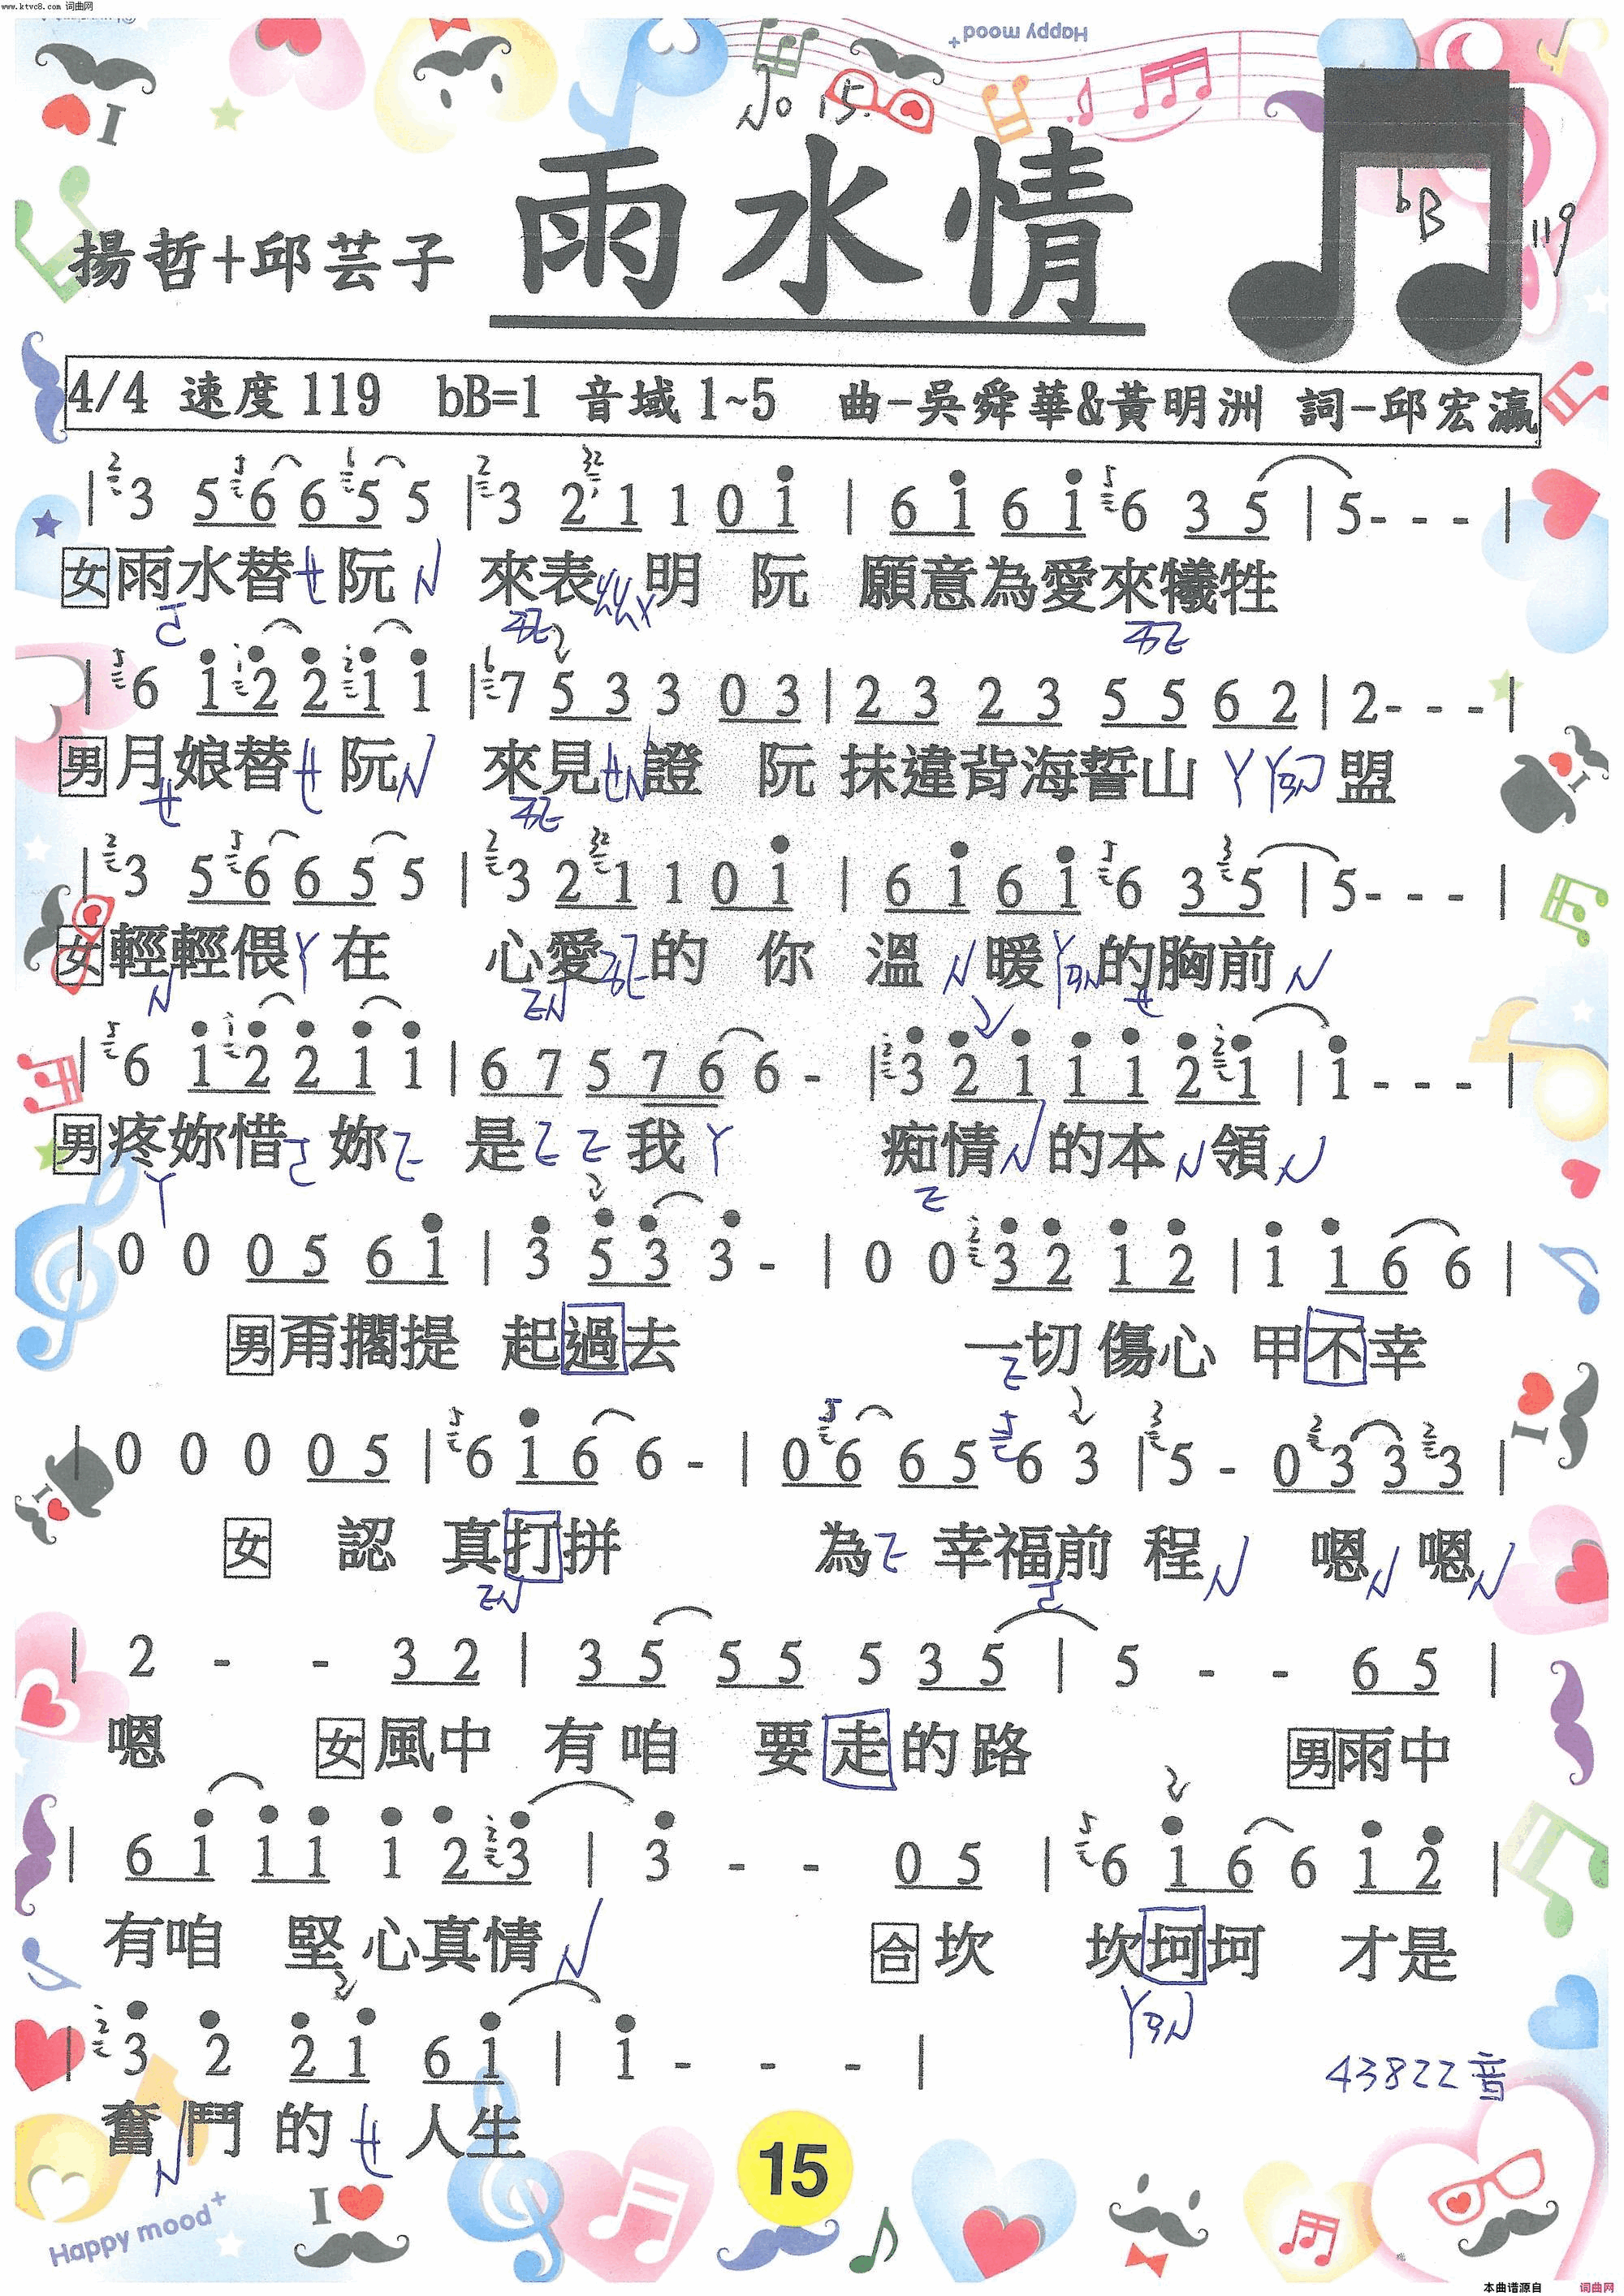 www.ktvc8.com 词曲网
Happy mood+
No 15.
雨水情
揚哲+邱芸子
bB 119
4/4 速度119 bB=1 音域1~5 曲-吳舜華&黃明洲 詞-邱宏瀛
| 3 5 6 6 5 5 | 3 2 1 1 0 i | 6 i 6 i 6 3 5 | 5 - - - |
女雨水替阮 來表明 阮 願意為愛來犧牲
| 6 i 2̇ 2̇ i i | 7 5 3 3 0 3 | 2 3 2 3 5 5 6 2 | 2 - - - |
男月娘替阮 來見證 阮 抹違背海誓山 盟
| 3 5 6 6 5 5 | 3 2 1 1 0 i | 6 i 6 i 6 3 5 | 5 - - - |
女輕輕偎在 心愛的 你 溫暖的胸前
| 6 i 2̇ 2̇ i i | 6 7 5 7 6 6 - | 3̇ 2̇ i i i 2̇ i | i - - - |
男疼妳惜 妳 是 我 痴情的本領
| 0 0 0 5 6 i | 3̇ 5̇ 3̇ 3̇ - | 0 0 3̇ 2̇ i 2̇ | i i 6 6 |
男甭擱提 起過去 一切傷心 甲不幸
| 0 0 0 0 5 | 6 i 6 6 - | 0 6 6 5 6 3 | 5 - 0 3 3 3 |
女 認 真打拼 為 幸福前 程 嗯 嗯
| 2 - - 3 2 | 3 5 5 5 5 3 5 | 5 - - 6 5 |
嗯 女風中 有咱 要走的路 男雨中
| 6 i i i i 2̇ 3̇ | 3̇ - - 0 5 | 6 i 6 6 i 2̇ |
有咱 堅心真情 合坎 坎坷坷 才是
| 3̇ 2̇ 2̇ i 6 i | i - - - |
43822音
奮鬥的 人生
15
I
Happy mood+
本曲谱源自 词曲网